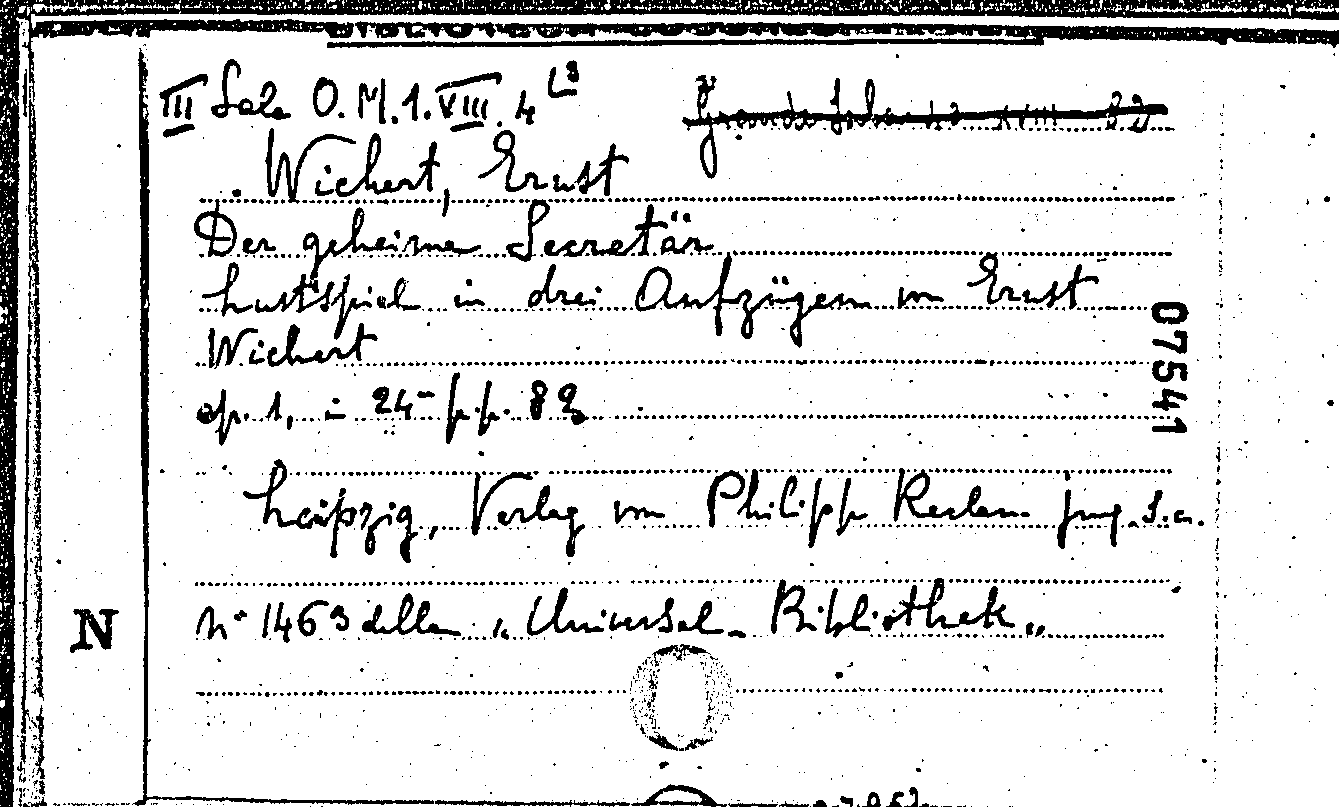 III Sala O.M.1.VIII.4 L3
Wichert, Ernst
Der geheime Secretär
Lustspiel in drei Aufzügen von Ernst
Wichert
op. 1, in 24- p.p. 82
Leipzig, Verlag von Philipp Reclam jung. s.a.
N° 1463 della „Universal-Bibliothek„
07541
N